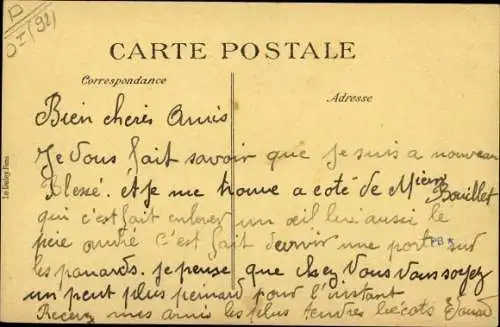 B
OI (92)
CARTE POSTALE
Correspondance
Adresse
Bien chères Amis
Je vous fait savoir que je suis a nouveau
Blessé. et je me trouve a coté de Mr Bouillet
qui c'est fait enlever un œil lui aussi le
père c'est fait ouvrir une porte sur
les panards. je pense que chez vous vous soyez
un peut plus peinard pour l'instant
Recevez mes amis les plus tendres bécots
PB